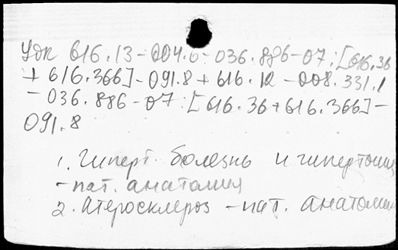 УДК 616.13-004.6-036.886-07:[616.36
+ 616.366]-091.8 + 616.12-008.331.1
-036.886-07:[616.36+616.366]-
091.8
1. Гиперт. болезнь и гипертония
-пат. анатомия
2. Атеросклероз -пат. анатомия